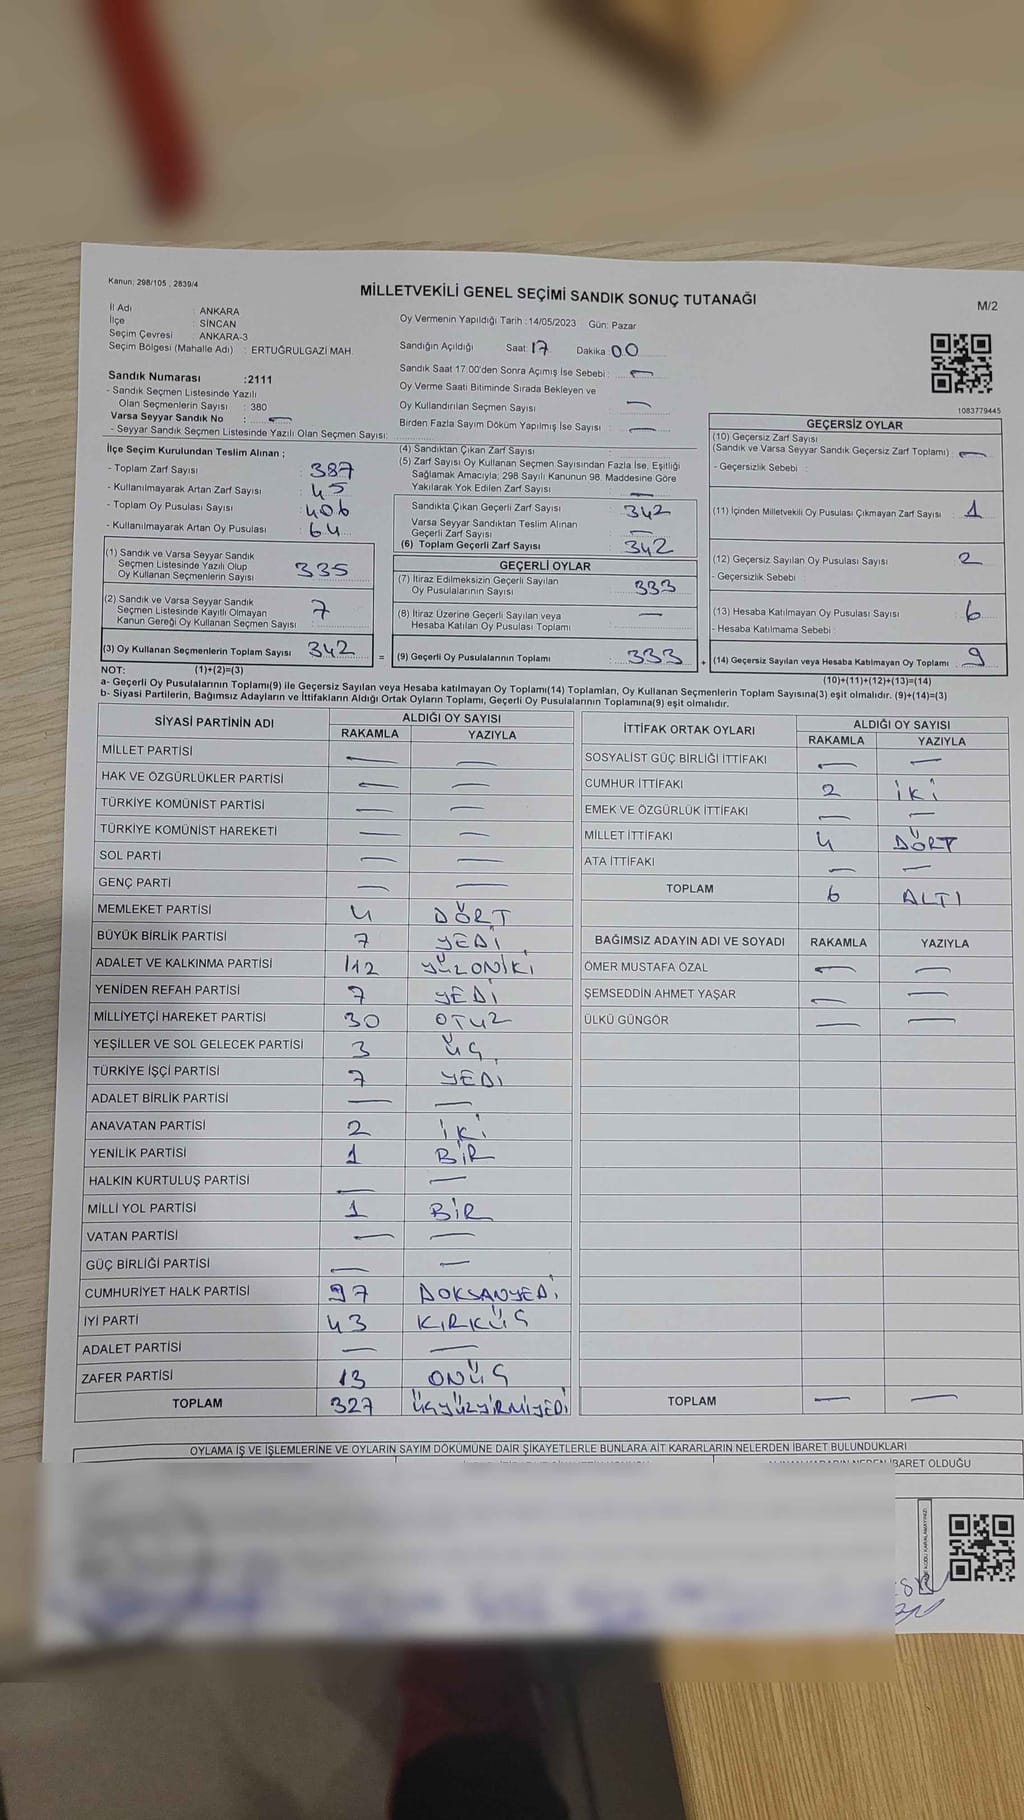 Kanun: 298/105 , 2839/4
MİLLETVEKİLİ GENEL SEÇİMİ SANDIK SONUÇ TUTANAĞI
M/2
İl Adı : ANKARA
İlçe : SİNCAN
Seçim Çevresi : ANKARA-3
Seçim Bölgesi (Mahalle Adı) : ERTUĞRULGAZİ MAH.
Sandık Numarası :2111
- Sandık Seçmen Listesinde Yazılı
Olan Seçmenlerin Sayısı : 380
Varsa Seyyar Sandık No : —
- Seyyar Sandık Seçmen Listesinde Yazılı Olan Seçmen Sayısı:
Oy Vermenin Yapıldığı Tarih :14/05/2023 Gün: Pazar
Sandığın Açıldığı Saat: 17 Dakika 00
Sandık Saat 17.00'den Sonra Açımış İse Sebebi : —
Oy Verme Saati Bitiminde Sırada Bekleyen ve
Oy Kullandırılan Seçmen Sayısı : —
Birden Fazla Sayım Döküm Yapılmış İse Sayısı : —
1083779445
İlçe Seçim Kurulundan Teslim Alınan ;
- Toplam Zarf Sayısı : 387
- Kullanılmayarak Artan Zarf Sayısı : 45
- Toplam Oy Pusulası Sayısı : 406
- Kullanılmayarak Artan Oy Pusulası : 64
(1) Sandık ve Varsa Seyyar Sandık
Seçmen Listesinde Yazılı Olup
Oy Kullanan Seçmenlerin Sayısı : 335
(2) Sandık ve Varsa Seyyar Sandık
Seçmen Listesinde Kayıtlı Olmayan
Kanun Gereği Oy Kullanan Seçmen Sayısı : 7
(3) Oy Kullanan Seçmenlerin Toplam Sayısı : 342
(4) Sandıktan Çıkan Zarf Sayısı :
(5) Zarf Sayısı Oy Kullanan Seçmen Sayısından Fazla İse, Eşitliği
Sağlamak Amacıyla; 298 Sayılı Kanunun 98. Maddesine Göre
Yakılarak Yok Edilen Zarf Sayısı : —
Sandıkta Çıkan Geçerli Zarf Sayısı : 342
Varsa Seyyar Sandıktan Teslim Alınan
Geçerli Zarf Sayısı : —
(6) Toplam Geçerli Zarf Sayısı : 342
GEÇERLİ OYLAR
(7) İtiraz Edilmeksizin Geçerli Sayılan
Oy Pusulalarının Sayısı : 333
(8) İtiraz Üzerine Geçerli Sayılan veya
Hesaba Katılan Oy Pusulası Toplamı : —
= (9) Geçerli Oy Pusulalarının Toplamı : 333
GEÇERSİZ OYLAR
(10) Geçersiz Zarf Sayısı
(Sandık ve Varsa Seyyar Sandık Geçersiz Zarf Toplamı) : —
- Geçersizlik Sebebi :
(11) İçinden Milletvekili Oy Pusulası Çıkmayan Zarf Sayısı : 1
(12) Geçersiz Sayılan Oy Pusulası Sayısı : 2
- Geçersizlik Sebebi :
(13) Hesaba Katılmayan Oy Pusulası Sayısı : 6
- Hesaba Katılmama Sebebi :
+ (14) Geçersiz Sayılan veya Hesaba Katılmayan Oy Toplamı : 9
NOT: (1)+(2)=(3)
(10)+(11)+(12)+(13)=(14)
a- Geçerli Oy Pusulalarının Toplamı(9) ile Geçersiz Sayılan veya Hesaba katılmayan Oy Toplamı(14) Toplamları, Oy Kullanan Seçmenlerin Toplam Sayısına(3) eşit olmalıdır. (9)+(14)=(3)
b- Siyasi Partilerin, Bağımsız Adayların ve İttifakların Aldığı Ortak Oyların Toplamı, Geçerli Oy Pusulalarının Toplamına(9) eşit olmalıdır.
SİYASİ PARTİNİN ADI ALDIĞI OY SAYISI
RAKAMLA YAZIYLA
MİLLET PARTİSİ — —
HAK VE ÖZGÜRLÜKLER PARTİSİ — —
TÜRKİYE KOMÜNİST PARTİSİ — —
TÜRKİYE KOMÜNİST HAREKETİ — —
SOL PARTİ — —
GENÇ PARTİ — —
MEMLEKET PARTİSİ 4 DÖRT
BÜYÜK BİRLİK PARTİSİ 7 YEDİ
ADALET VE KALKINMA PARTİSİ 112 YÜZONİKİ
YENİDEN REFAH PARTİSİ 7 YEDİ
MİLLİYETÇİ HAREKET PARTİSİ 30 OTUZ
YEŞİLLER VE SOL GELECEK PARTİSİ 3 ÜÇ
TÜRKİYE İŞÇİ PARTİSİ 7 YEDİ
ADALET BİRLİK PARTİSİ — —
ANAVATAN PARTİSİ 2 İKİ
YENİLİK PARTİSİ 1 BİR
HALKIN KURTULUŞ PARTİSİ — —
MİLLİ YOL PARTİSİ 1 BİR
VATAN PARTİSİ — —
GÜÇ BİRLİĞİ PARTİSİ — —
CUMHURİYET HALK PARTİSİ 97 DOKSANYEDİ
İYİ PARTİ 43 KIRKÜÇ
ADALET PARTİSİ — —
ZAFER PARTİSİ 13 ONÜÇ
TOPLAM 327 ÜÇYÜZYİRMİYEDİ
İTTİFAK ORTAK OYLARI ALDIĞI OY SAYISI
RAKAMLA YAZIYLA
SOSYALİST GÜÇ BİRLİĞİ İTTİFAKI — —
CUMHUR İTTİFAKI 2 İKİ
EMEK VE ÖZGÜRLÜK İTTİFAKI — —
MİLLET İTTİFAKI 4 DÖRT
ATA İTTİFAKI — —
TOPLAM 6 ALTI
BAĞIMSIZ ADAYIN ADI VE SOYADI RAKAMLA YAZIYLA
ÖMER MUSTAFA ÖZAL — —
ŞEMSEDDİN AHMET YAŞAR — —
ÜLKÜ GÜNGÖR — —
TOPLAM — —
OYLAMA İŞ VE İŞLEMLERİNE VE OYLARIN SAYIM DÖKÜMÜNE DAİR ŞİKAYETLERLE BUNLARA AİT KARARLARIN NELERDEN İBARET BULUNDUKLARI
İBARET OLDUĞU